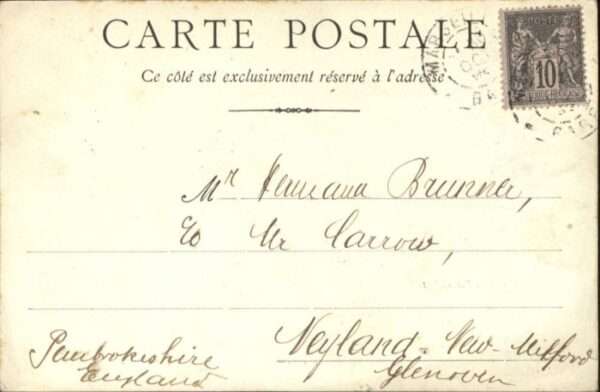 CARTE POSTALE
Ce côté est exclusivement réservé à l'adresse
POSTE
10
MARSEILLE
Mr Hermann Brunner,
to Mr Carrow,
Neyland - New - Milford
Glenoven
Pembrokeshire
England